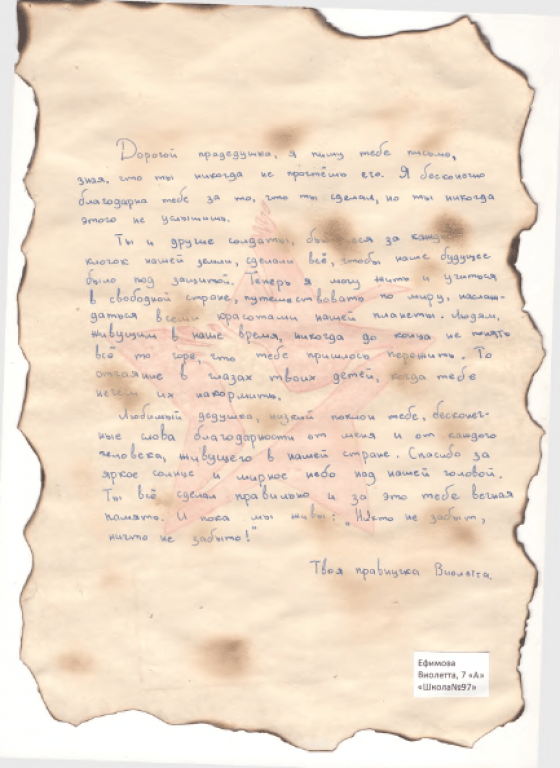 Дорогой прадедушка, я пишу тебе письмо,
зная, что ты никогда не прочтёшь его. Я бесконечно
благодарна тебе за то, что ты сделал, но ты никогда
этого не услышишь.
Ты и другие солдаты, за
клочок нашей земли, сделали всё, чтобы наше будущее
было под защитой. Теперь я могу жить и учиться
в свободной стране, путешествовать по миру, наслаж-
даться всеми красотами нашей планеты. Людям,
живущим в наше время, никогда до конца не понять
всё то горе, что тебе пришлось пережить. То
отчаяние в глазах твоих детей, когда тебе
нечем их накормить.
Любимый дедушка, низкий поклон тебе, бесконеч-
ные слова благодарности от меня и от каждого
человека, живущего в нашей стране. Спасибо за
яркое солнце и мирное небо над нашей головой.
Ты всё сделал правильно и за это тебе вечная
память. И пока мы живы: „Никто не забыт,
ничто не забыто!"
Твоя правнучка Виолетта.
Ефимова
Виолетта, 7 «А»
«Школа№97»